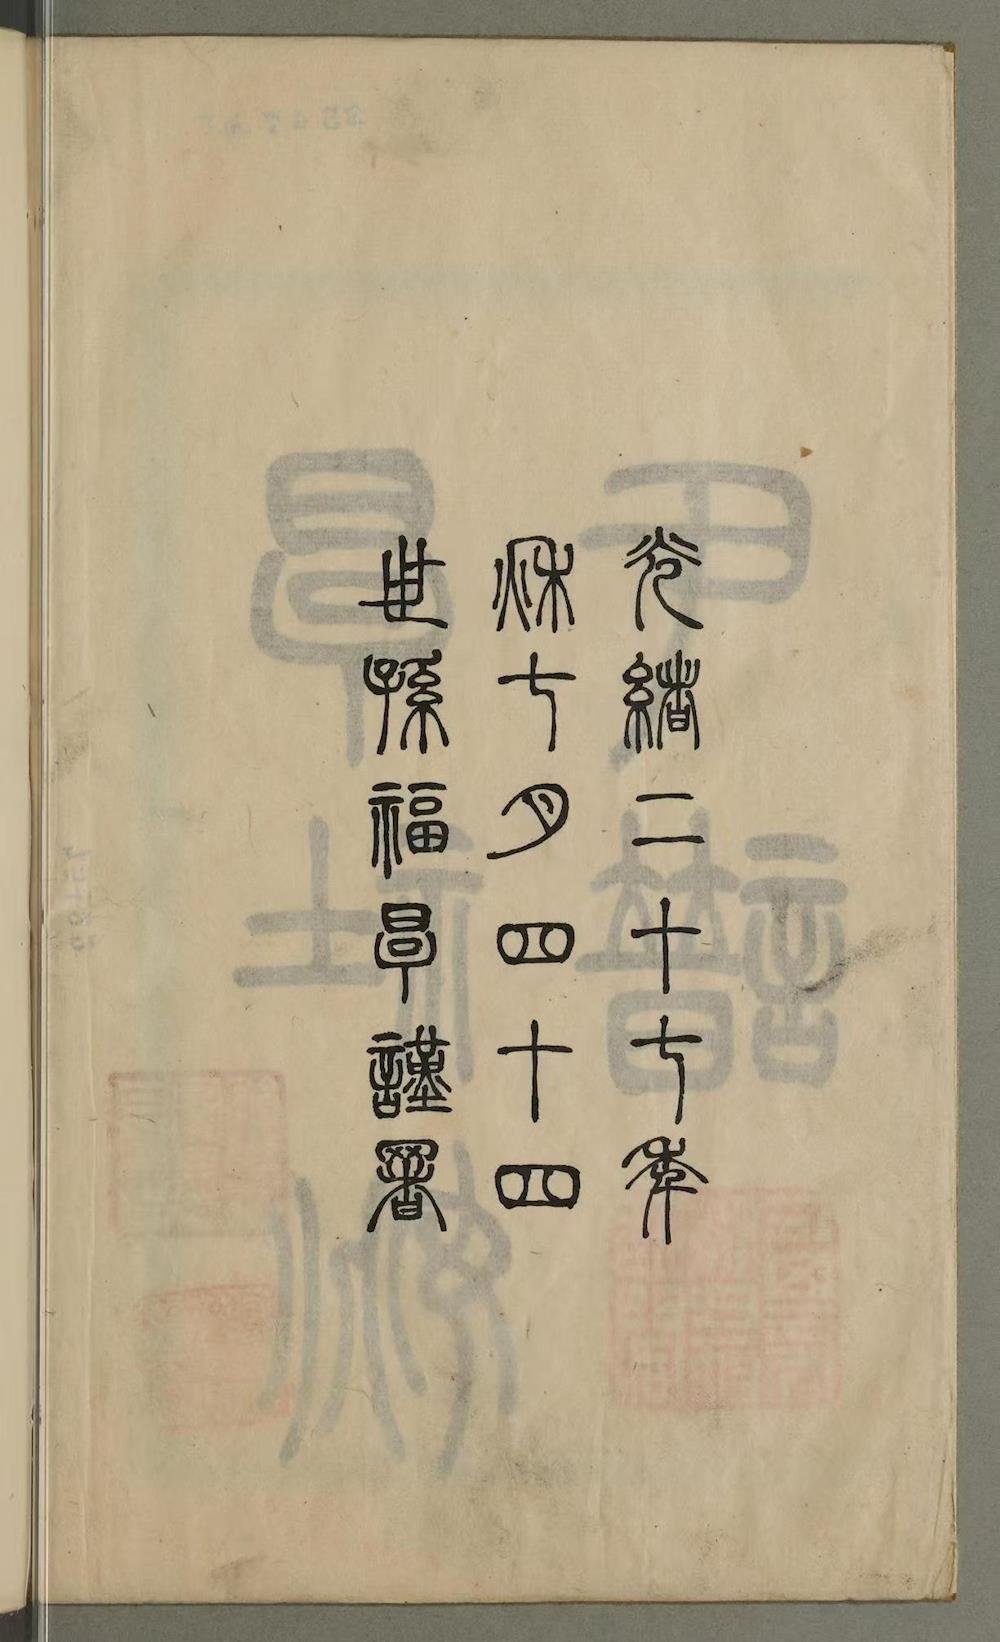 光緒二十七年
秋七月四十四
世孫福㫗謹署